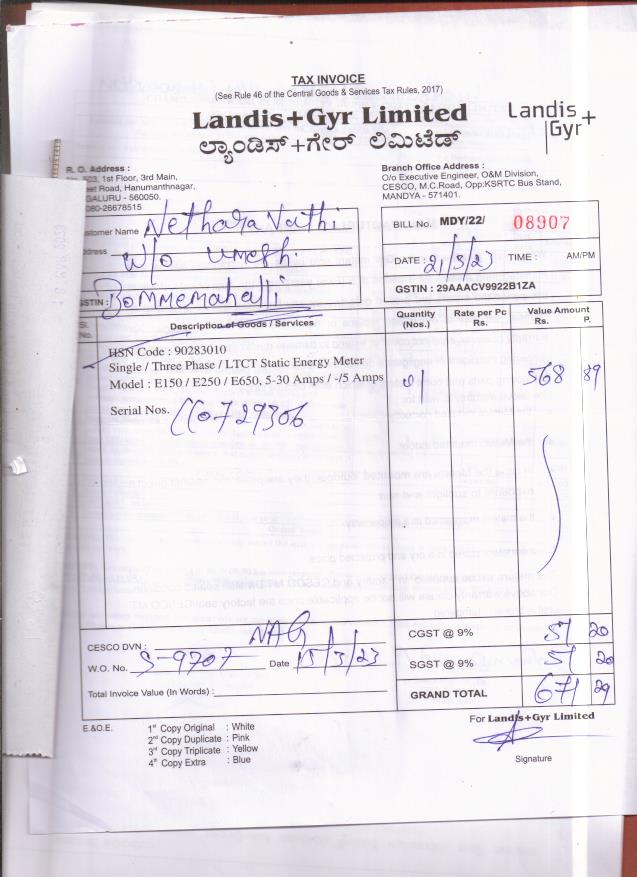 TAX INVOICE
(See Rule 46 of the Central Goods & Services Tax Rules, 2017)
Landis+Gyr Limited
ಲ್ಯಾಂಡಿಸ್+ಗೇರ್ ಲಿಮಿಟೆಡ್
Landis+
Gyr
R. O. Address :
1st Floor, 3rd Main,
Road, Hanumanthnagar,
- 560050.
080-26678515
Branch Office Address :
O/o Executive Engineer, O&M Division,
CESCO, M.C.Road, Opp:KSRTC Bus Stand,
MANDYA - 571401.
Customer Name Nethara Vathi
W/o Umesh.
GSTIN : Bommemahalli
BILL No. MDY/22/ 08907
DATE : 21/3/23 TIME : AM/PM
GSTIN : 29AAACV9922B1ZA
Sl. No. Description of Goods / Services Quantity (Nos.) Rate per Pc Rs. Value Amount Rs. P.
HSN Code : 90283010
Single / Three Phase / LTCT Static Energy Meter
Model : E150 / E250 / E650, 5-30 Amps / -/5 Amps 01 568 89
Serial Nos. CC0729306
CESCO DVN : NAG
W.O. No. S-9707 Date 15/3/23
Total Invoice Value (In Words) :
CGST @ 9% 51 20
SGST @ 9% 51 20
GRAND TOTAL 671 29
E.&O.E.
1st Copy Original : White
2nd Copy Duplicate : Pink
3rd Copy Triplicate : Yellow
4th Copy Extra : Blue
For Landis+Gyr Limited
Signature